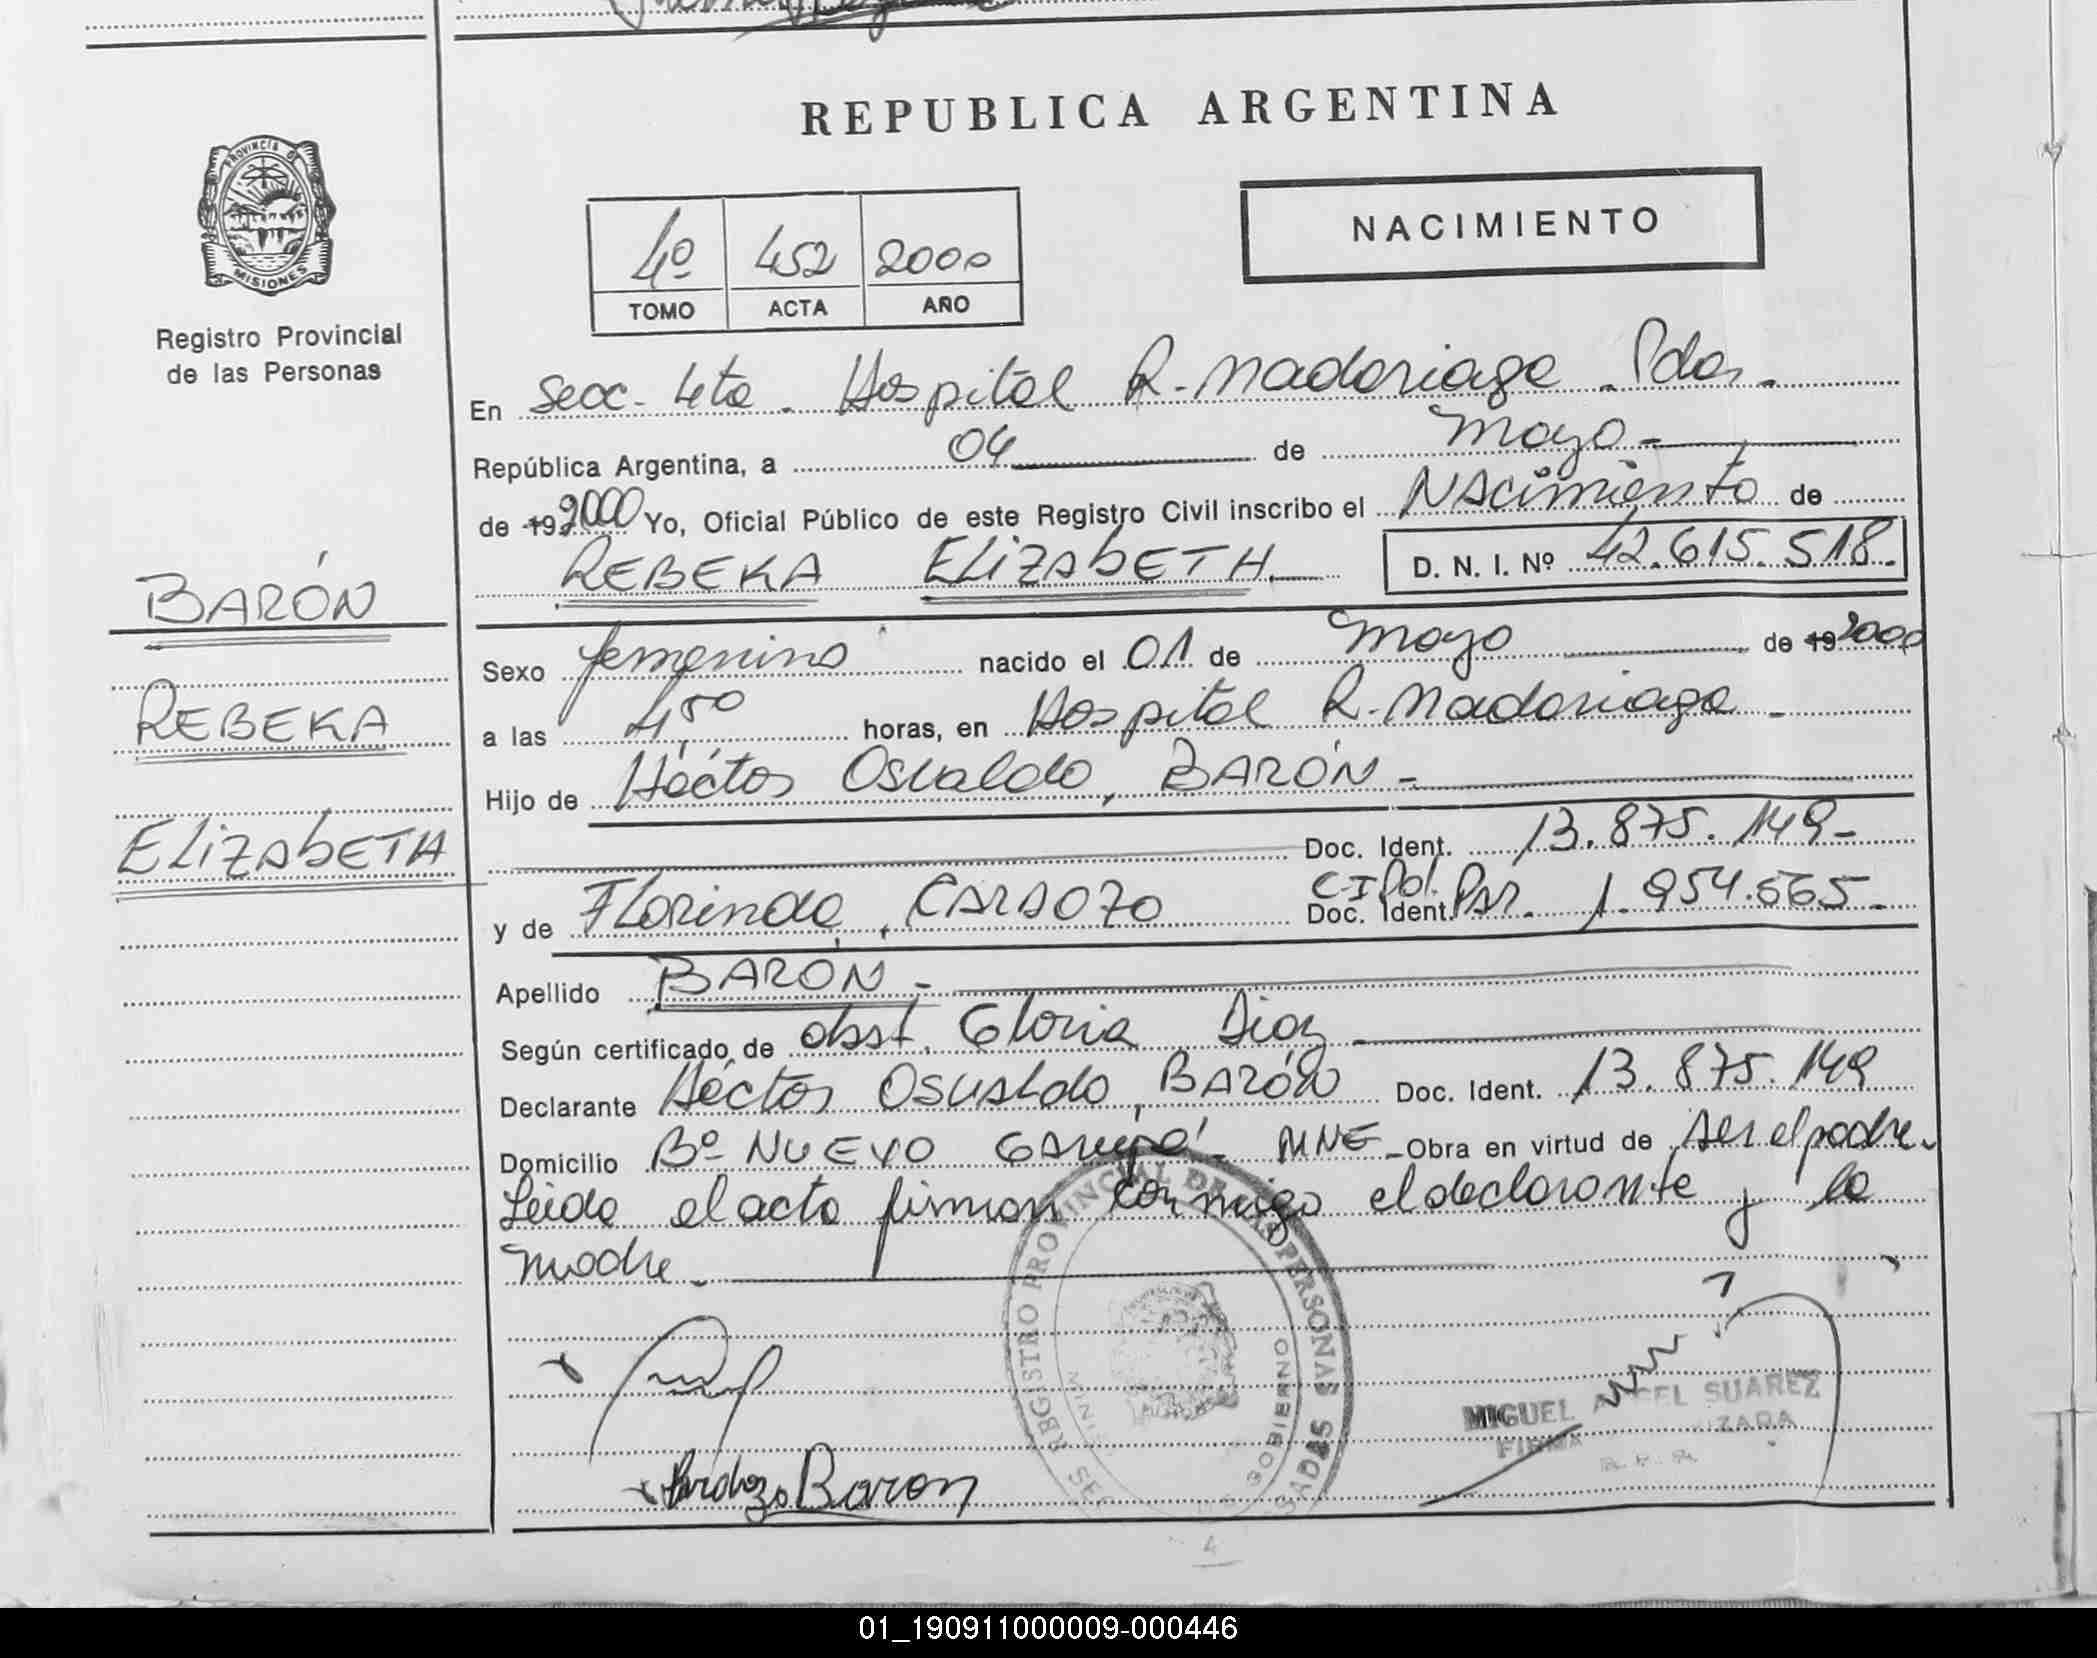 REPUBLICA ARGENTINA
PROVINCIA DE MISIONES
Registro Provincial
de las Personas
NACIMIENTO
4º 452 2000
TOMO ACTA AÑO
En Secc. 4ta. Hospital R. Madariaga. Pdas.
República Argentina, a 04 de Mayo
de 19 2000 Yo, Oficial Público de este Registro Civil inscribo el NAcimiento de
REBEKA ELIZAbETH D. N. I. Nº 42.615.518.
BARÓN
REBEKA
ELIZAbETH
Sexo femenino nacido el 01 de Mayo de 19 2000
a las 4,50 horas, en Hospital R. Madariaga
Hijo de Héctor Osvaldo, BARÓN
Doc. Ident. 13.875.149
C.I.Pol.
y de Florinda, CARDOZO Doc. Ident. Par. 1.954.665
Apellido BARÓN
Según certificado de obst. Gloria Diaz
Declarante Héctor OSVALdo, BARÓN Doc. Ident. 13.875.149
Domicilio Bº NUEVO GARUPÁ MNE Obra en virtud de ser el padre.
Leida el acta firman conmigo el declarante y la
madre.
REGISTRO PROVINCIAL DE LAS PERSONAS
GOBIERNO
MIGUEL ANGEL SUAREZ
FIRMA
Baron
4
01_190911000009-000446